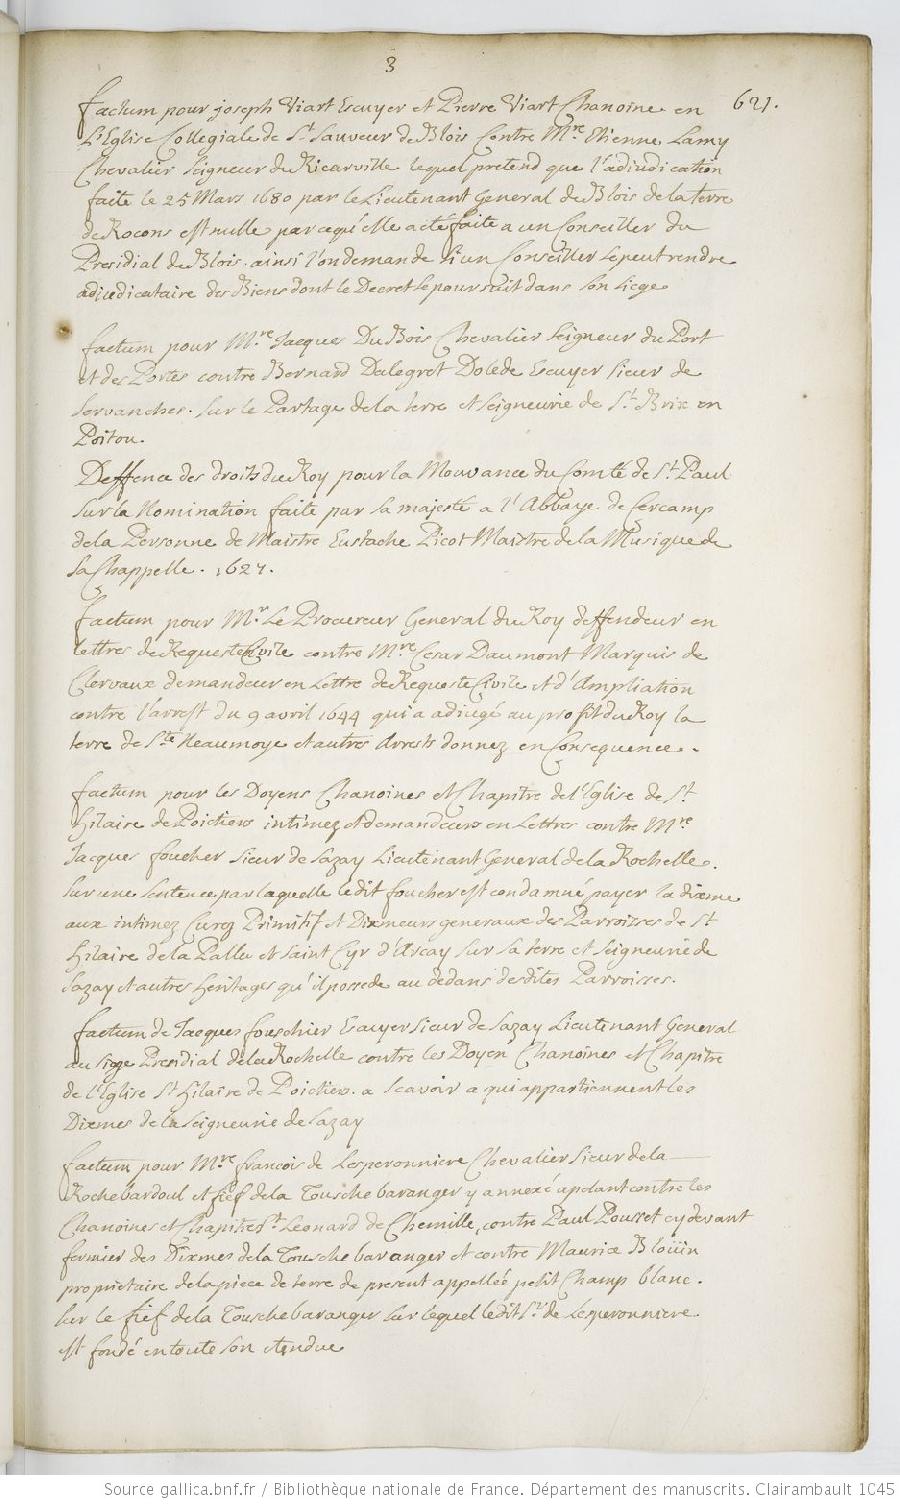 3
621.
factum pour joseph Viart Escuyer et Pierre Viart Chanoine en
L'Eglise Collegiale de St Sauveur de Blois Contre Mre Etienne Lamy
Chevalier Seigneur de Ricarville lequel pretend que l'adiudication
faite le 25 Mars 1680 par le Lieutenant General de Blois de la terre
de Rocons est nulle parcequ'elle a eté faite a un Conseiller du
Presidial de Blois. ainsi l'on demande Si un Conseiller Se peut rendre
adiudicataire des Biens dont le Decret Se poursuit dans Son Siege
factum pour Mre Jacques Du Bois Chevalier Seigneur du Port
et des Portes contre Bernard Dalegret Dolede Escuyer Sieur de
Servanches. Sur le Partage de la terre et Seigneurie de St Brix en
Poitou.
Deffence des droits du Roy pour la Mouvance du Comté de St Paul
Sur la Nomination faite par sa majesté a l'Abbaye de Cercamp
de la Personne de Maistre Eustache Picot Maistre de la Musique de
Sa Chappelle. 1627.
factum pour Mr Le Procureur General du Roy deffendeur en
lettres de Requeste Civile contre Mre Cesar Daumont Marquis de
Clervaux demandeur en Lettre de Requeste Civile et d'Ampliation
contre l'arrest du 9 avril 1644 qui a adiugé au profit du Roy la
terre de Ste Neaumoye et autres Arrests donnez en Consequence.
factum pour les Doyens Chanoines et Chapitre de l'Eglise de St
Hilaire de Poictiers intimez et demandeurs en Lettres contre Mre
Jacques foucher Sieur de Sazay Lieutenant General de la Rochelle.
Sur une Sentence par laquelle ledit foucher est condamné payer la dixme
aux intimez Curez Primitif et Dixmeurs generaux des Parroisses de St
Hilaire de la Pallu et Saint Cyr d'Arcay Sur sa terre et Seigneurie de
Sazay et autres heritages qu'il possede au dedans desdites Parroisses.
factum de Jacques fouschier Escuyer Sieur de Sazay Lieutenant General
au Siege Presidial de la Rochelle contre les Doyen Chanoines et Chapitre
de l'Eglise St Hilaire de Poictiers. a Scavoir a qui appartiennent les
Dixmes de la Seigneurie de Sazay
factum pour Mre francois de Lesperonniere Chevalier Sieur de la
Rochebardoul et fief de la Tousche baranger y annexé apelant contre les
Chanoines et Chapitre St Leonard de Chemille, contre Paul Pousset cy devant
fermier des Dixmes de la Tousche baranger et contre Maurice Bloüin
proprietaire de la piece de terre de present appellée petit Champ blanc.
Sur le fief de la Tousche baranger sur lequel ledit Sr de Lesperonniere
est fondé en toute Son etendue
Source gallica.bnf.fr / Bibliothèque nationale de France. Département des manuscrits. Clairambault 1045